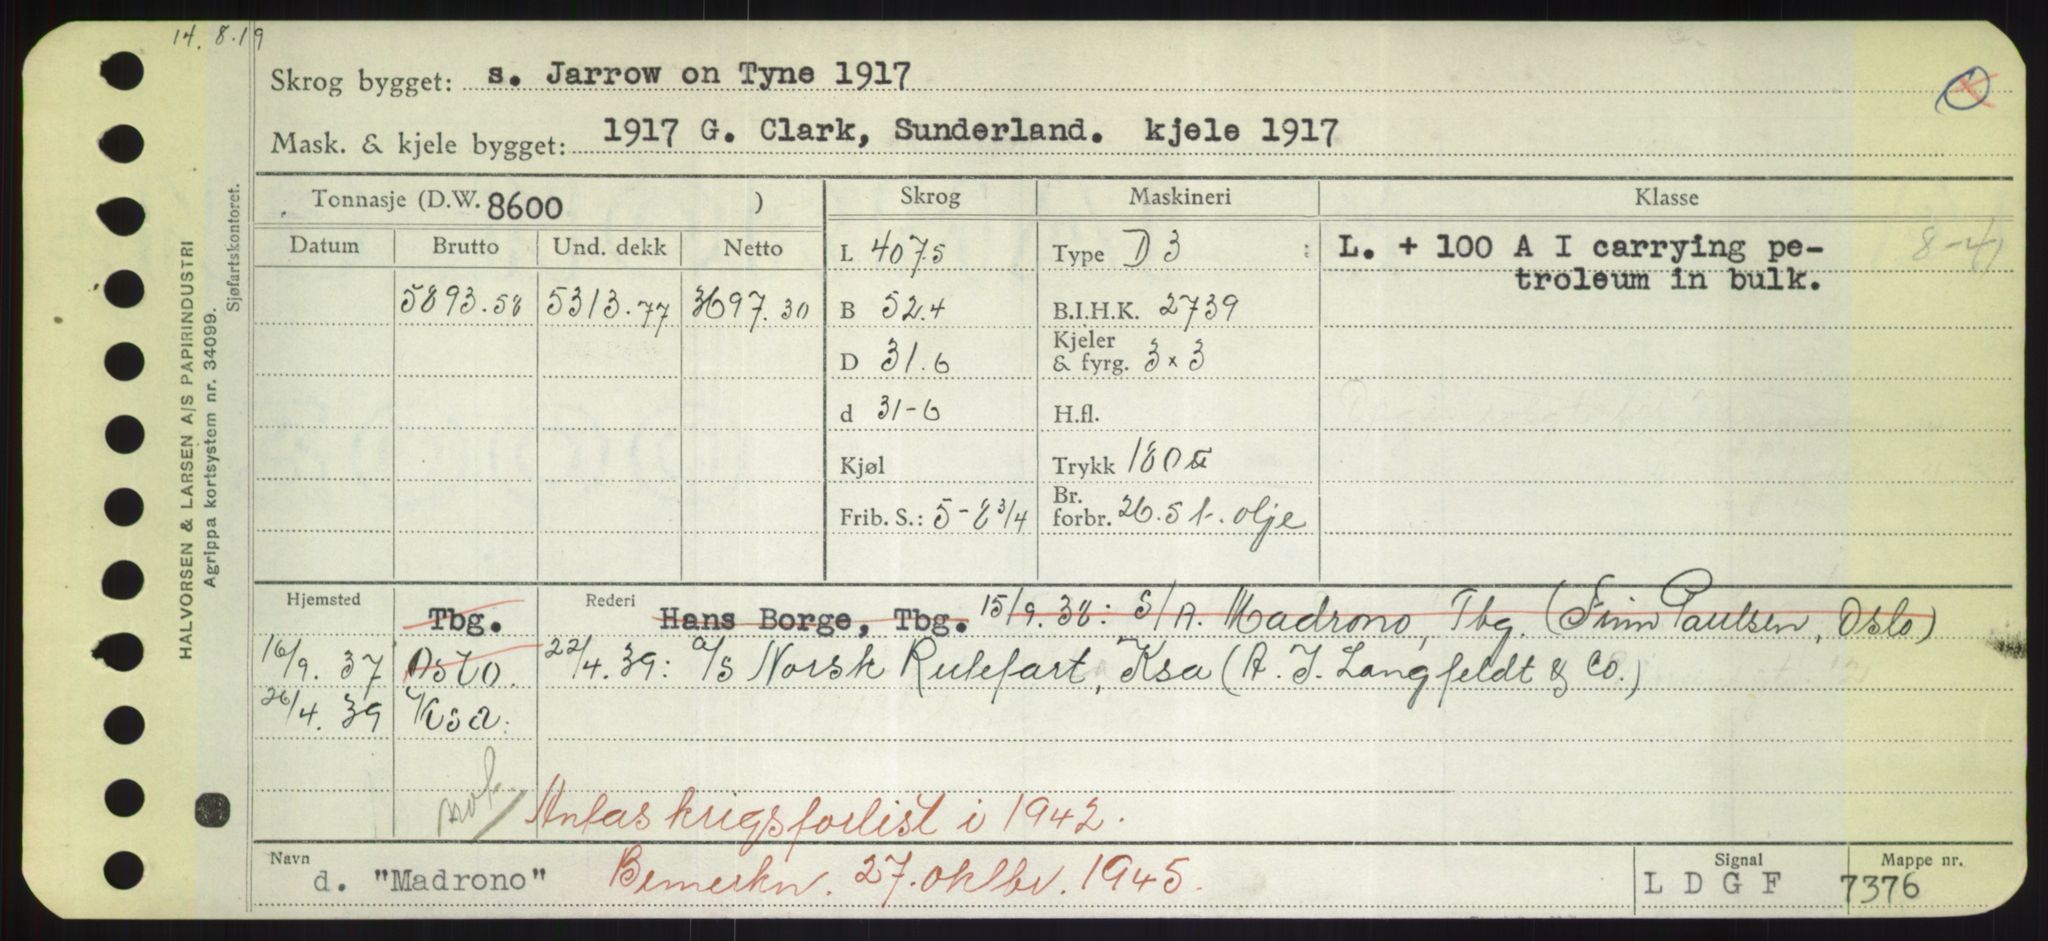 14. 8.19
Skrog bygget: s. Jarrow on Tyne 1917
Mask. & kjele bygget: 1917 G. Clark, Sunderland. kjele 1917
Tonnasje (D.W. 8600 ) Skrog Maskineri Klasse
Datum Brutto Und. dekk Netto
L 407.5 Type D 3 : L. + 100 A I carrying pe-
troleum in bulk.
8-41
5893.58 5313.77 3697.30 B 52.4 B.I.H.K. 2739
D 31.6 Kjeler & fyrg. 3 x 3
d 31-6 H.fl.
Kjøl Trykk 180
Frib. S.: 5-8 3/4 Br. forbr. 26.5 t. olje
Hjemsted Tbg. Rederi Hans Borge, Tbg. 15/9.38: S/A. Madrono, Tbg. (Finn Paulsen, Oslo)
16/9. 37 Oslo. 22/4.39: A/S Norsk Rutefart, Ksa (A. I. Langfeldt & Co.)
26/4. 39 Ksa.
nok.
Antas krigsforlist i 1942.
Navn d. "Madrono" Bemerkn. 27. oktbr. 1945. Signal L D G F Mappe nr. 7376
HALVORSEN & LARSEN A/S PAPIRINDUSTRI
Agrippa kortsystem nr. 34099.
Sjøfartskontoret.